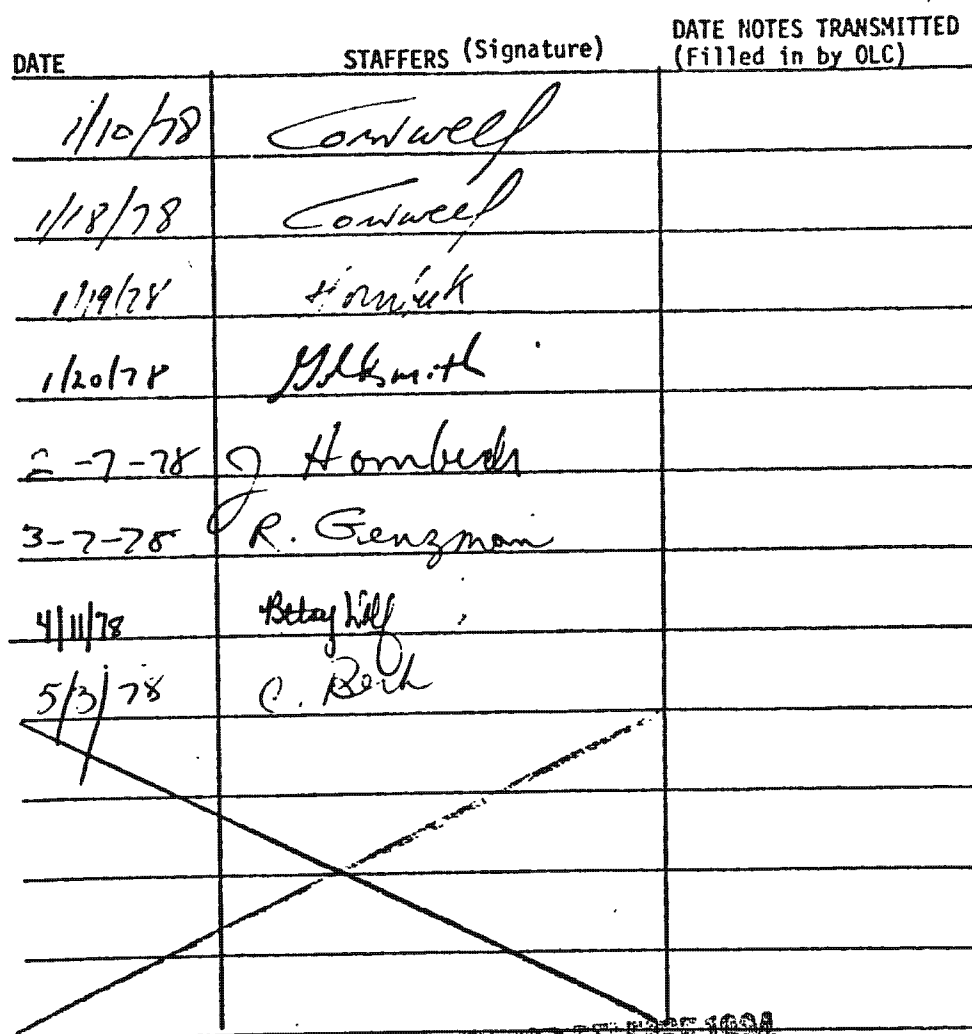 DATE STAFFERS (Signature) DATE NOTES TRANSMITTED
(Filled in by OLC)
1/10/78 Cornwell
1/18/78 Cornwell
1/19/78 Hornbeck
1/20/78 Goldsmith
2-7-78 J Hornbeck
3-7-78 R. Genzman
4/11/78 Betsy Wolf
5/3/78 C. Berk